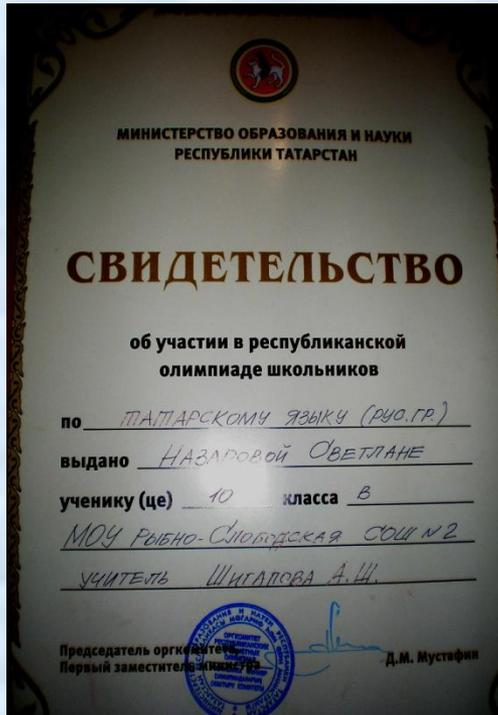 МИНИСТЕРСТВО ОБРАЗОВАНИЯ И НАУКИ
РЕСПУБЛИКИ ТАТАРСТАН
СВИДЕТЕЛЬСТВО
об участии в республиканской
олимпиаде школьников
по ТАТАРСКОМУ ЯЗЫКУ (РУС.ГР.)
выдано НАЗАРОВОЙ СВЕТЛАНЕ
ученику (це) 10 класса В
МОУ РЫБНО-СЛОБОДСКАЯ СОШ N 2
УЧИТЕЛЬ ШИГАПОВА А.Ш.
Председатель оргкомитета,
Первый заместитель министра
Д.М. Мустафин